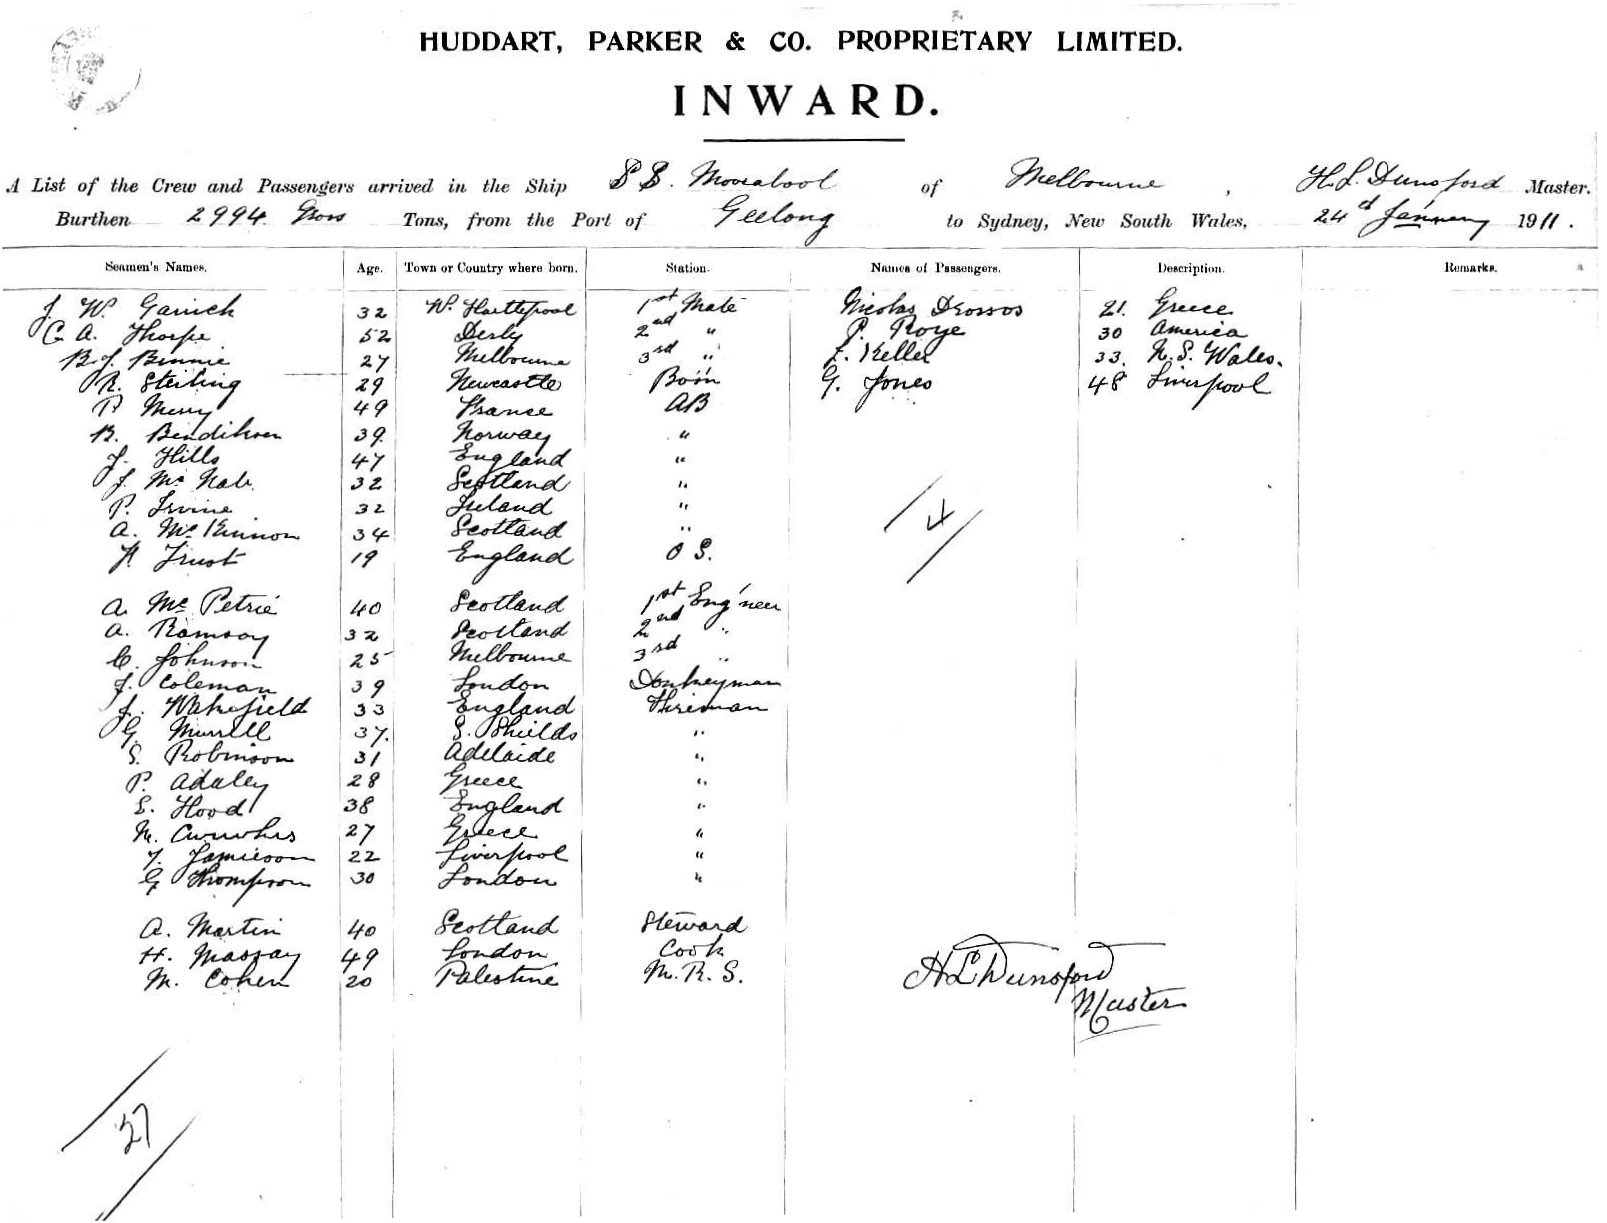 HUDDART, PARKER & CO. PROPRIETARY LIMITED.
INWARD.
A List of the Crew and Passengers arrived in the Ship SS. Moorabool of Melbourne, H. L. Dunsford Master.
Burthen 2994 Gross Tons, from the Port of Geelong to Sydney, New South Wales, 24th January 1911.
Seamen's Names. Age. Town or Country where born. Station. Names of Passengers. Description. Remarks.
J. W. 32 W. Hartlepool 1st Mate Nicolas Drossos 21. Greece
C. A. Thorpe 52 Derby 2nd " P. Roye 30 America
B. J. Binnie 27 Melbourne 3rd " Keller 33. N. S. Wales.
R. Sterling 29 Newcastle Bosn G. Jones 48 Liverpool
P. Merry 49 France AB
B. Bendiksen 39. Norway "
J. Hills 47 England "
J. Mc Nab. 32 Scotland "
P. Irvine 32 Ireland "
A. Mc Kinnon 34 Scotland "
Trust 19 England O S.
A. Mc Petrie 40 Scotland 1st Eng'neer
A. Ramsay 32 Scotland 2nd "
C. Johnson 25 Melbourne 3rd "
J. Coleman 39 London Donkeyman
J. Wakefield 33 England Fireman
G. Murrell 37. S. Shields "
S. Robinson 31 Adelaide "
P. Adaley 28 Greece "
S. Hood 38 England "
N. 27 Greece "
J. Jamieson 22 Liverpool "
G Thompson 30 London "
A. Martin 40 Scotland Steward
H. Massay 49 London Cook
M. Cohen 20 Palestine M. R. S.
H L Dunsford
Master
4
27